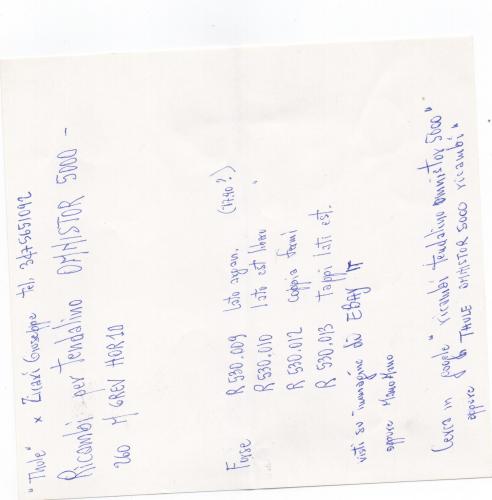 "Thule" x Zicari Giuseppe tel. 3475651092
Ricambi per tendalino OMNISTOR 5000 -
260 M GREY HOR10
Forse R 530.009 lato argan. (17.90?)
R 530.010 lato est. libero "
R 530.012 coppia fermi
R 530.013 tappi lati est.
visti su immagine di EBAY IT
oppure ManoMano
Cerca in google "ricambi tendalino omnistor 5000"
oppure "THULE OMNISTOR 5000 ricambi"